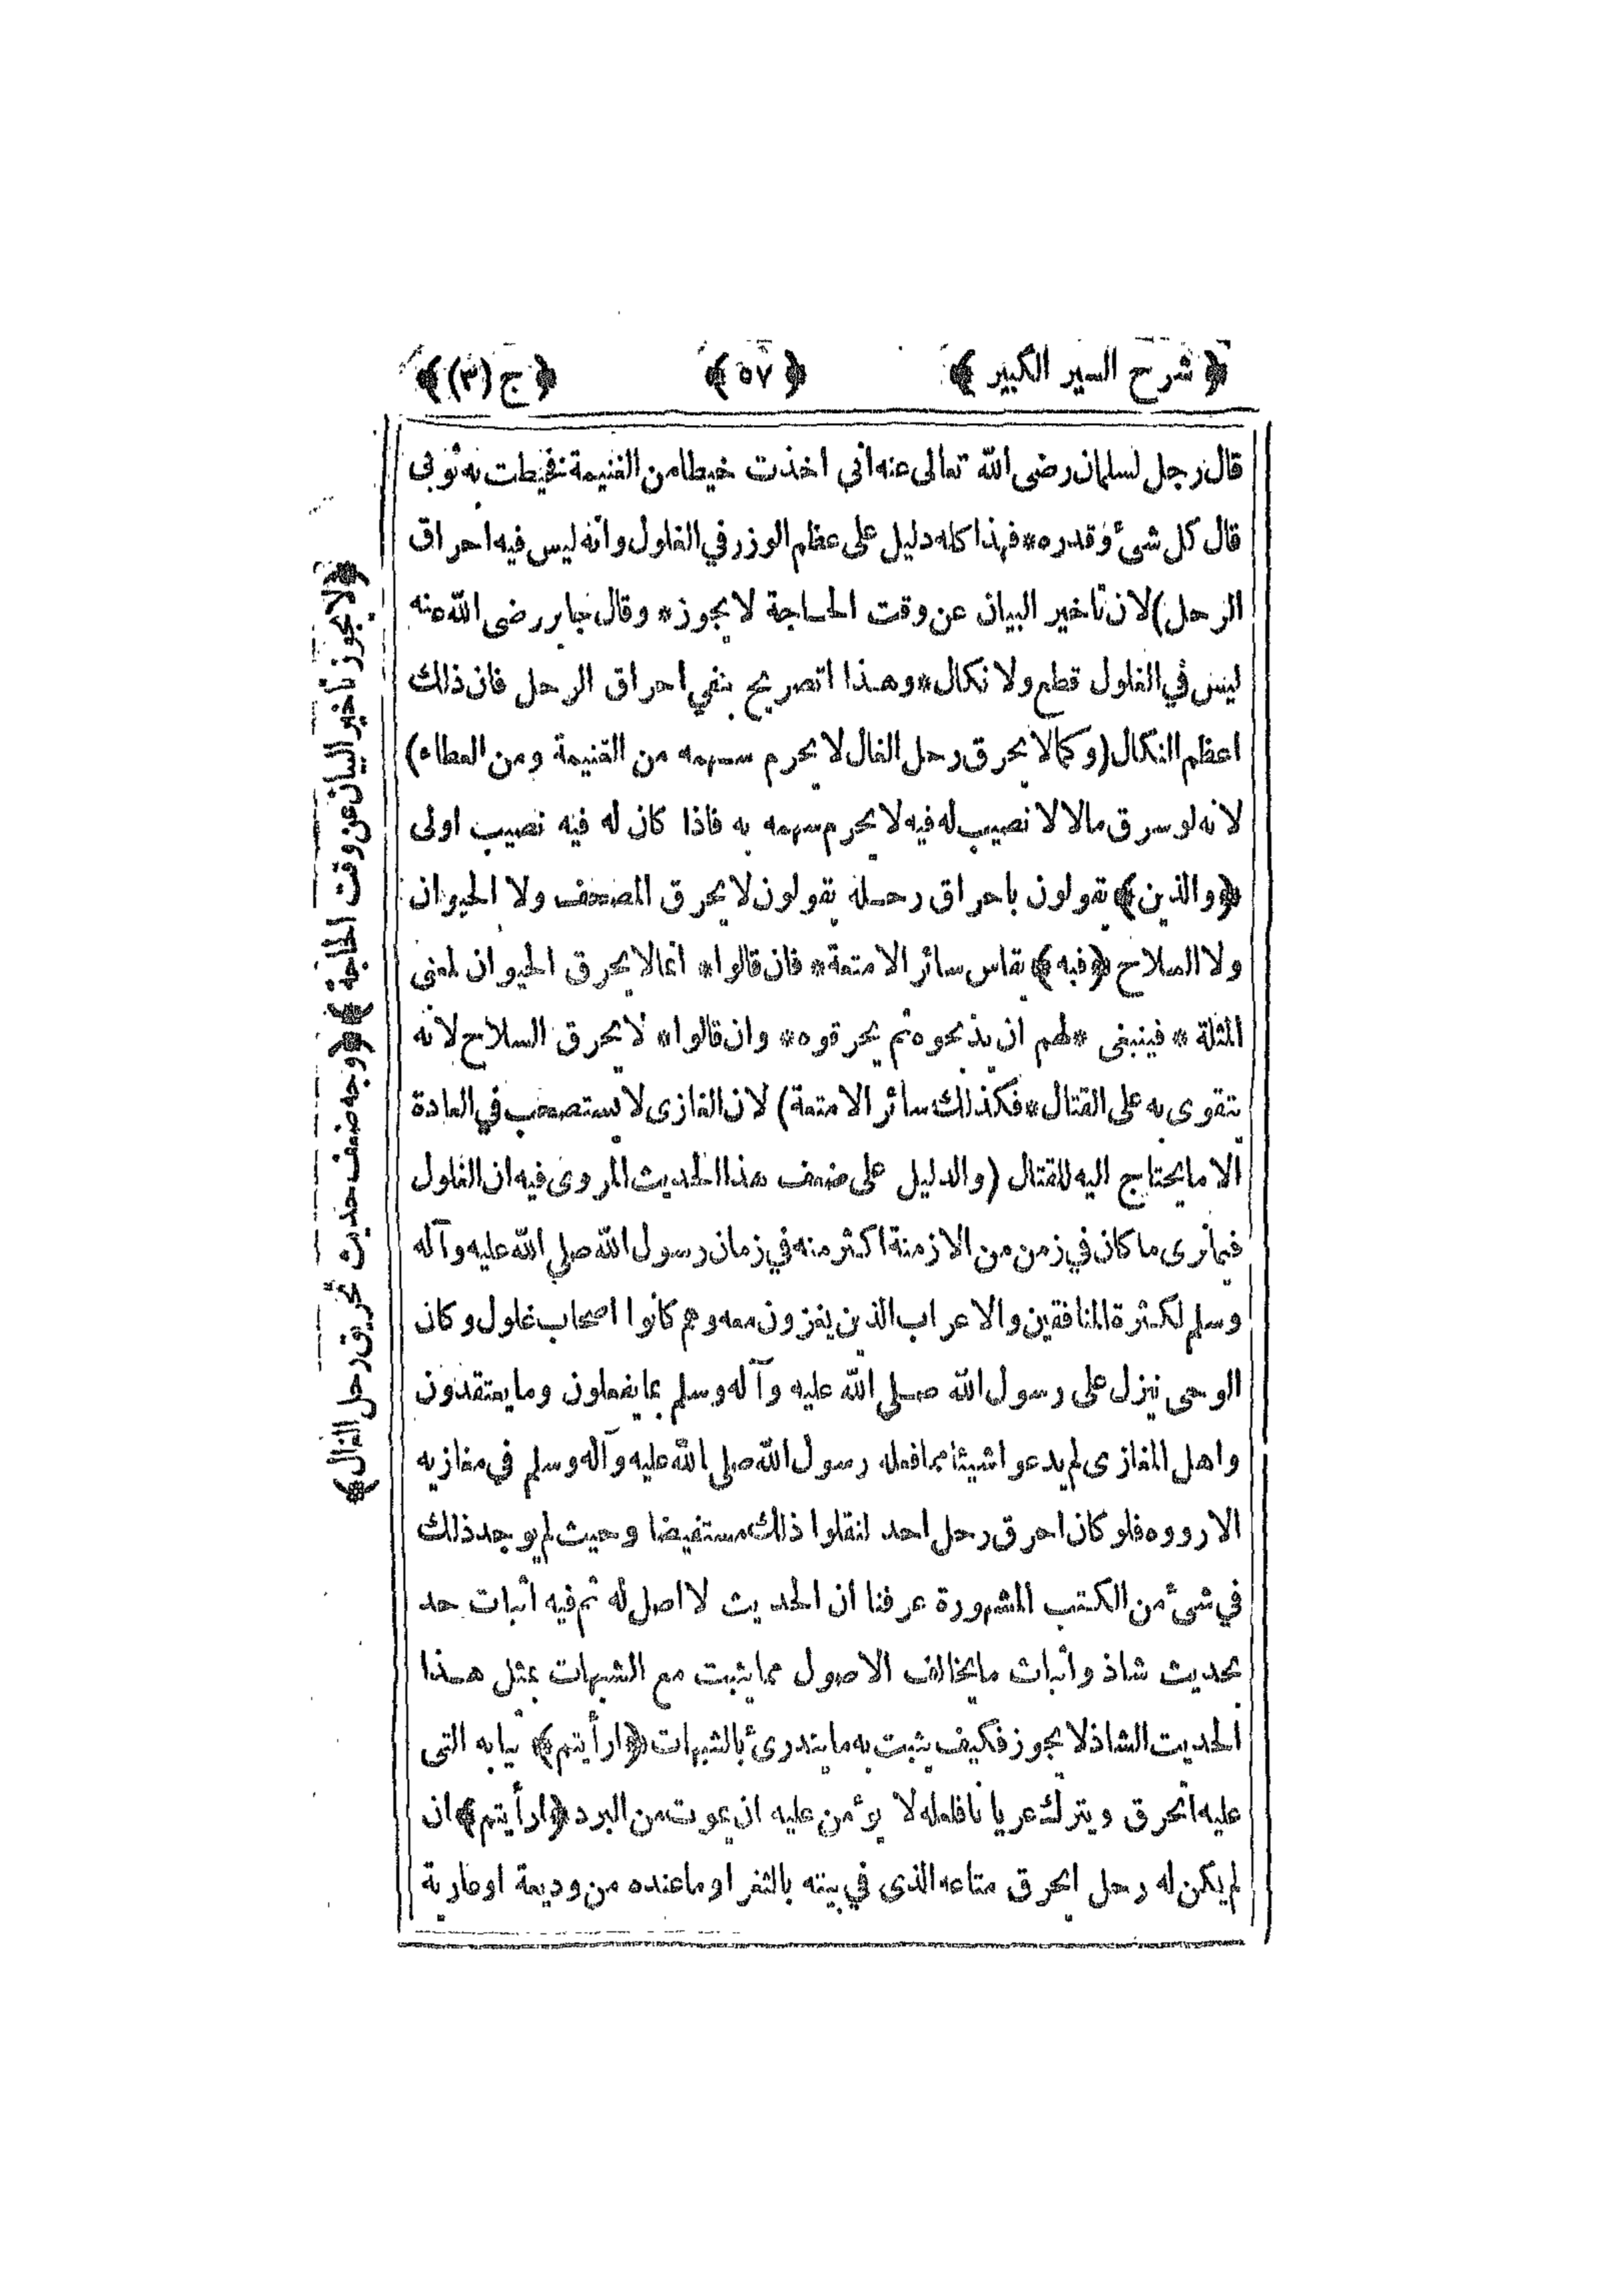 ﴿ شرح السير الكبير ﴾ ﴿ ٥٧ ﴾ ﴿ ج (٣) ﴾
قال رجل لسلمان رضى الله تعالى عنه اني اخذت خيطا من الغنيمة فخيطت به ثوبى
قال كل شئ وقدره * فهذا كله دليل على عظم الوزر في الغلول وانه ليس فيه احراق
الرحل) لان تأخير البيان عن وقت الحاجة لا يجوز * وقال جابر رضى الله عنه
ليس في الغلول قطع ولا نكال * وهذا اتصريح بنفي احراق الرحل فان ذلك
اعظم النكال (وكما لا يحرق رحل الغال لا يحرم سهمه من الغنيمة ومن العطاء)
لانه لو سرق مالا لا نصيب له فيه لا يحرم سهمه به فاذا كان له فيه نصيب اولى
﴿ والذين ﴾ يقولون باحراق رحله يقولون لا يحرق المصحف ولا الحيوان
ولا السلاح ﴿ فبه ﴾ يقاس سائر الامتعة * فان قالوا * انما لا يحرق الحيوان لمعنى
المثلة * فينبغى * لهم ان يذبحوه ثم يحرقوه * وان قالوا * لا يحرق السلاح لانه
يتقوى به على القتال * فكذلك سائر الامتعة) لان الغازى لا يستصحب في العادة
الا ما يحتاج اليه للقتال (والدليل على ضعف هذا الحديث المروى فيه ان الغلول
فيما نرى ما كان في زمن من الازمنة اكثر منه في زمان رسول الله صلى الله عليه وآله
وسلم لكثرة المنافقين والاعراب الذين يغزون معه وهم كانوا اصحاب غلول وكان
الوحى ينزل على رسول الله صلى الله عليه وآله وسلم بما يفعلون وما يعتقدون
واهل المغازى لم يدعوا شيئا مما فعله رسول الله صلى الله عليه وآله وسلم في مغازيه
الا رووه فلو كان احرق رحل احد لنقلوا ذلك مستفيضا وحيث لم يوجد ذلك
في شئ من الكتب المشهورة عرفنا ان الحديث لا اصل له ثم فيه اثبات حد
بحديث شاذ واثبات ما يخالف الاصول مما يثبت مع الشبهات بمثل هذا
الحديث الشاذ لا يجوز فكيف يثبت به ما يندرئ بالشبهات ﴿ ارأيتم ﴾ ثيابه التى
عليه اتحرق ويترك عريا نا فلعله لا يؤمن عليه ان يموت من البرد ﴿ ارأيتم ﴾ ان
لم يكن له رحل ايحرق متاعه الذى في بيته بالثغر او ما عنده من وديعة او عارية
﴿ لا يجوز تأخير البيان عن وقت الحاجة ﴾ ﴿ وجه ضعف حديث تحريق رحل الغال ﴾